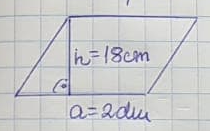 h=18cm
a=2dm